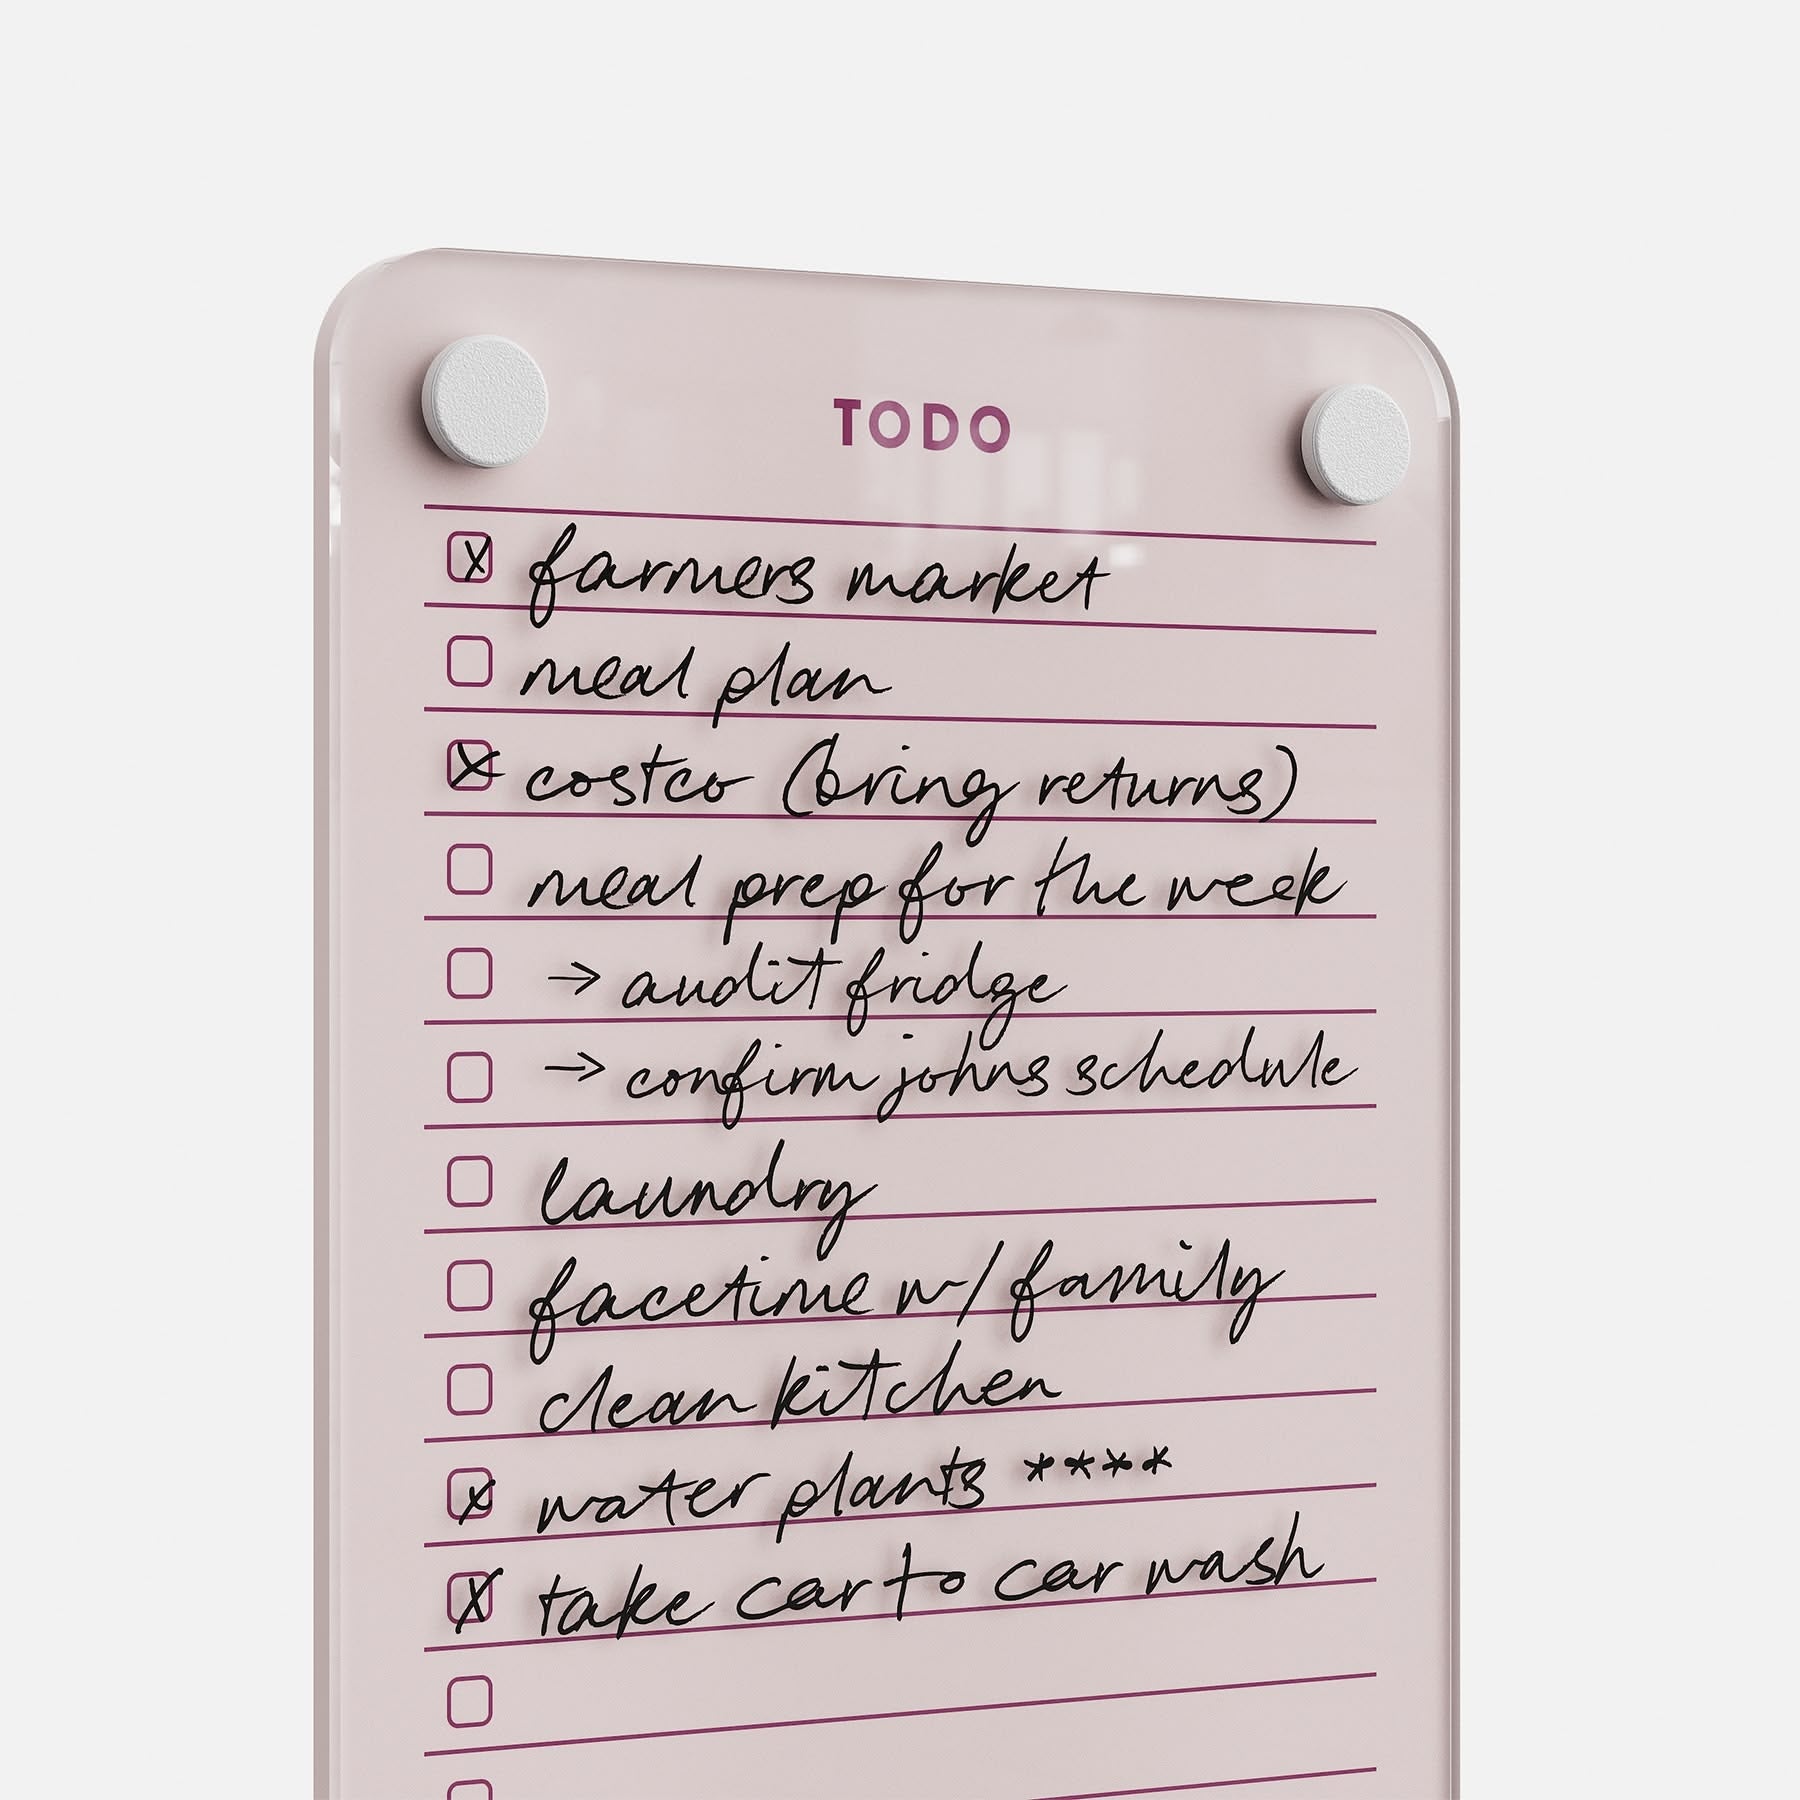 TODO
farmers market
meal plan
costco (bring returns)
meal prep for the week
→ audit fridge
→ confirm johns schedule
laundry
facetime w/ family
clean kitchen
water plants ****
take car to car wash